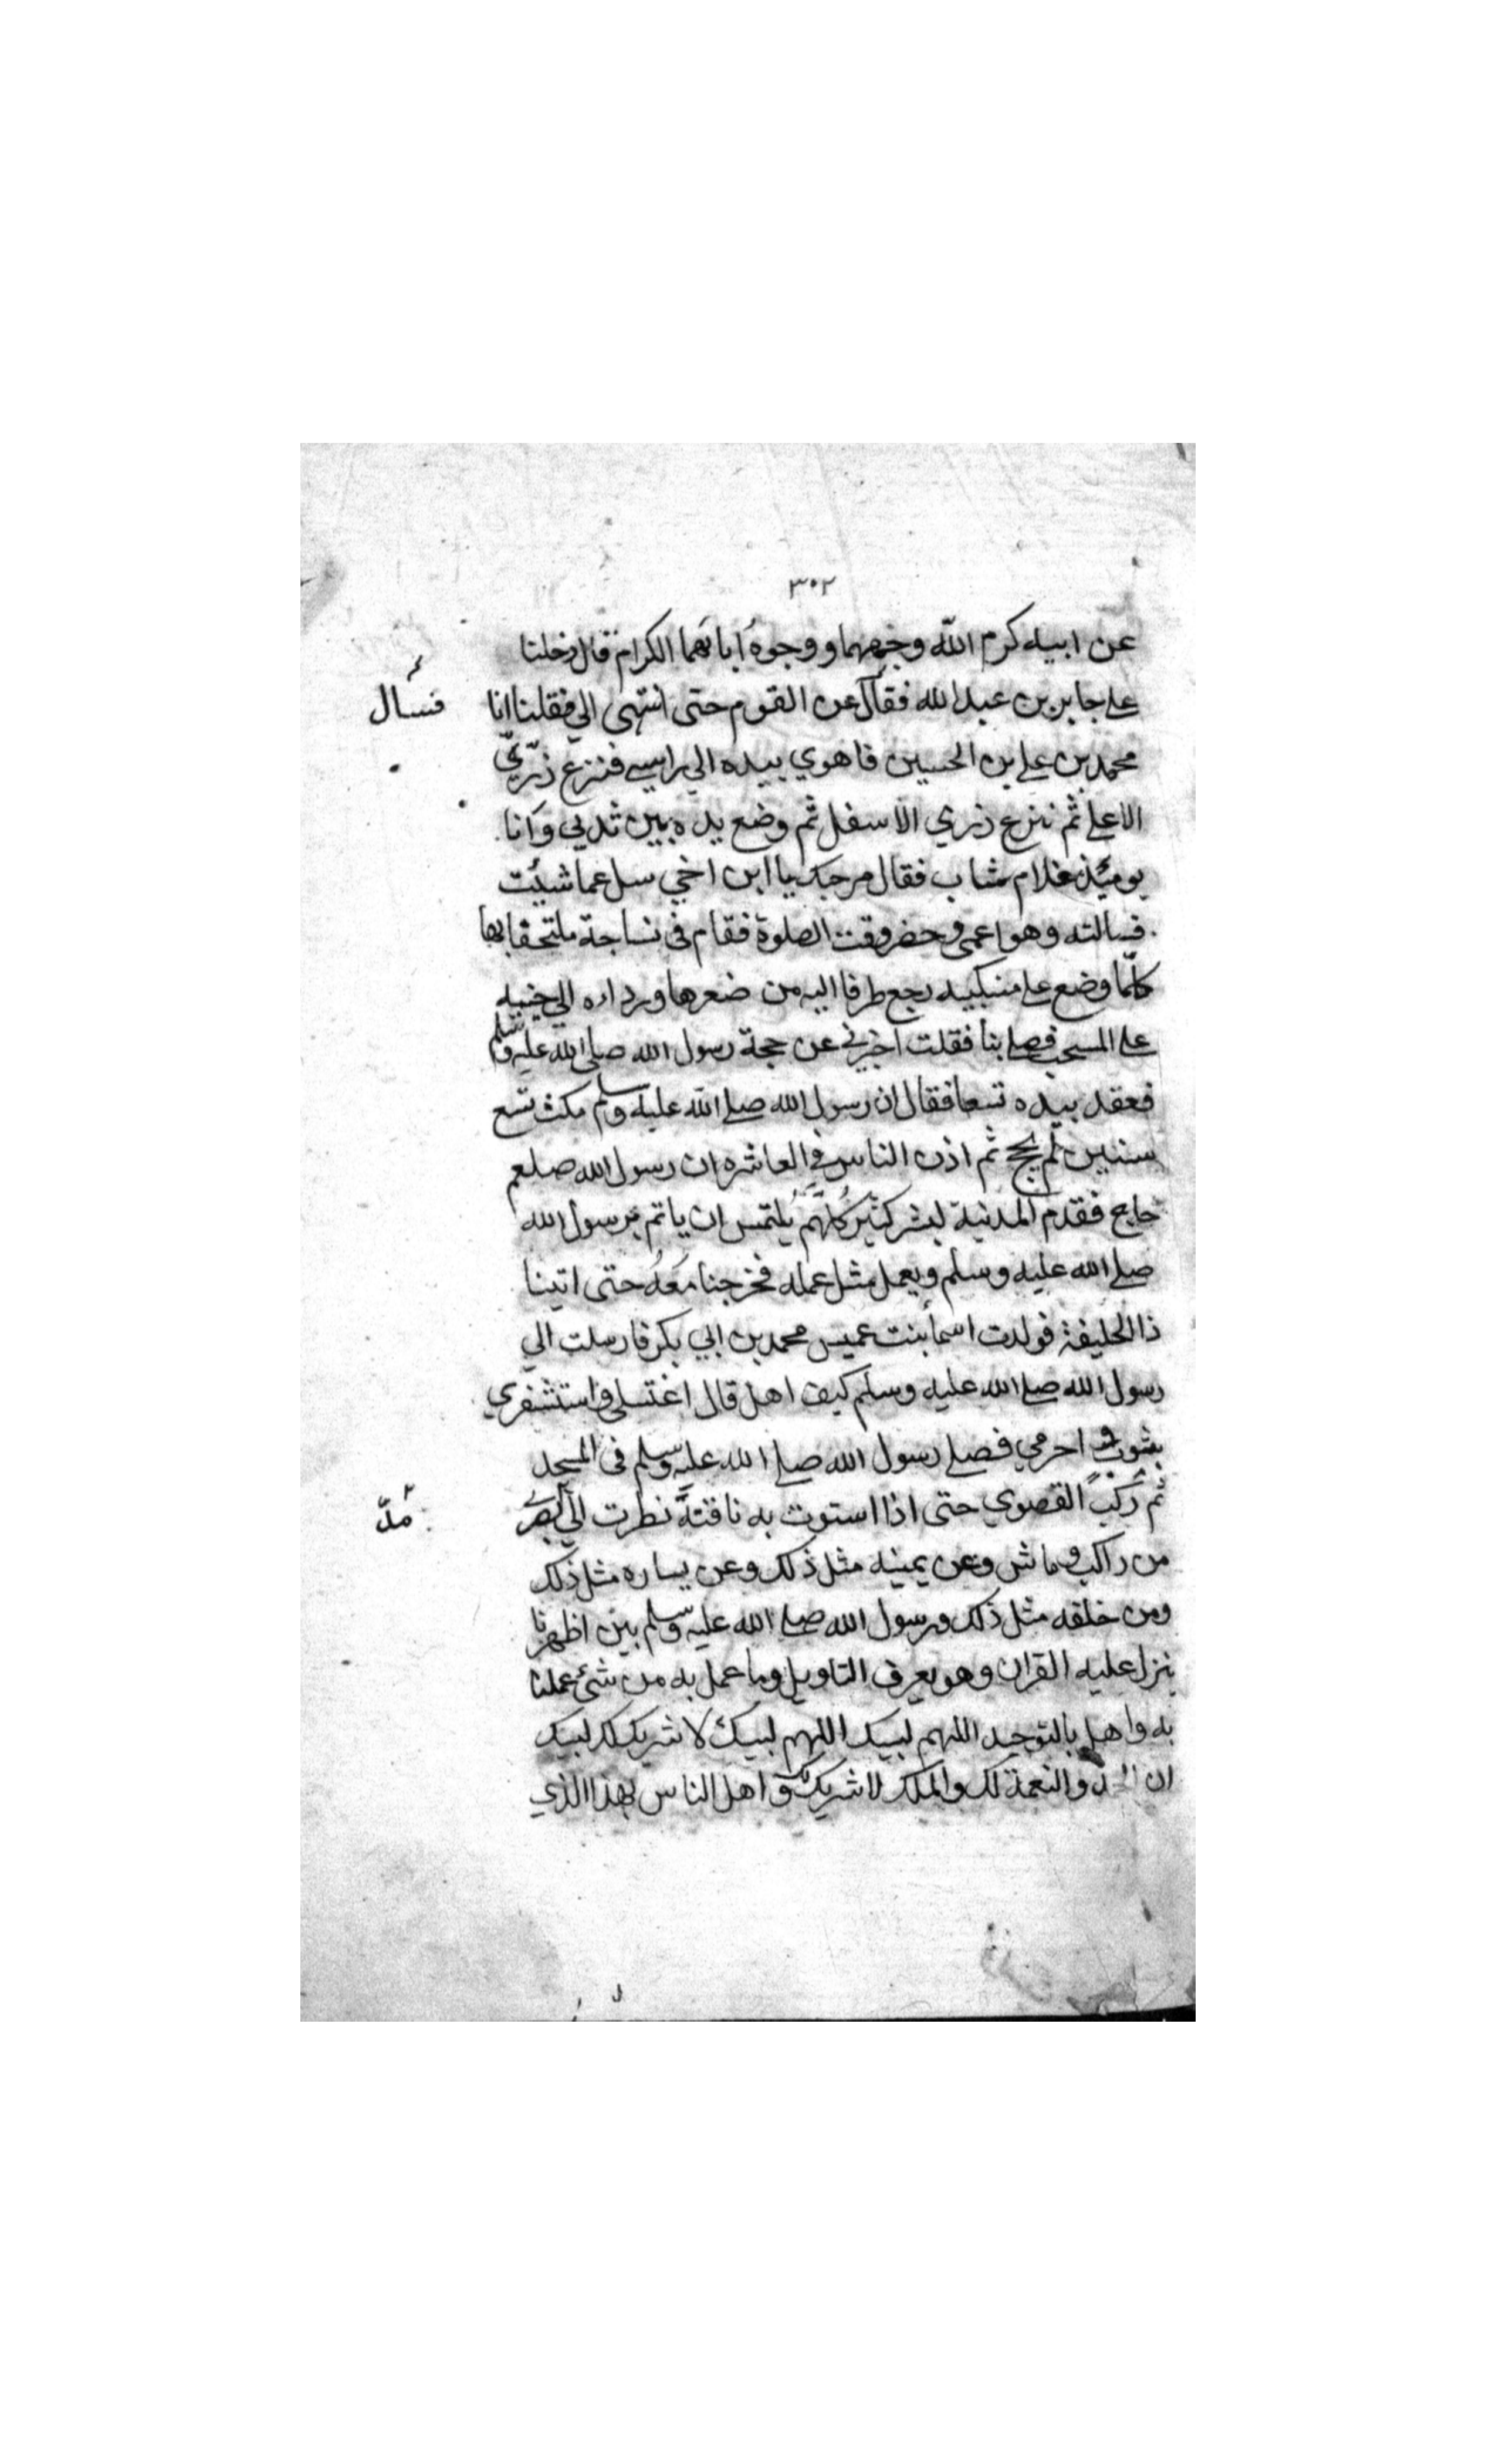 ٣٠٢
عن ابيه كرم الله وجههما ووجوه ابائهما الكرام قال دخلنا
على جابر بن عبد الله فقال عن القوم حتى انتهى الي فقلنا انا
فسأل
محمد بن علي بن الحسين فاهوي بيده الي راسي فنزع زرّيّ
الاعلى ثم نزع زري الاسفل ثم وضع يده بين ثديي وانا
يومئذ غلام شاب فقال مرحبك يا ابن اخي سل عما شيئت
فسالته وهو اعمى وحضر وقت الصلوة فقام في نساجة ملتحفا بها
كلّما وضع على منكبيه رجع طرفا اليه من ضعرها ورداءه الي جنبه
على المسجب فصلى بنا فقلت اخبرني عن حجة رسول الله صلى الله عليه وسلم
فعقد بيده تسعا فقال ان رسول الله صلى الله عليه وسلم مكث تسع
سنيين لم يحج ثم اذن الناس في العاشره ان رسول الله صلعم
حاج فقدم المدنية لبشر كثير كُلّهم يُلتمس ان ياتم برسول الله
صلى الله عليه وسلم ويعمل مثل عمله فخرجنا مَعَهُ حتى اتينا
ذا الحليفة فولدت اسما بنت عميس محمد بن ابي بكر فارسلت الي
رسول الله صلى الله عليه وسلم كيف اهل قال اغتسلي واستشفري
بثوب واحرمي فصلى رسول الله صلى الله عليه وسلم في المسجد
ثم ركب القصوي حتى اذا استوت به ناقته نظرت الي بصري
مدّ
من راكب وماش وعن يمينه مثل ذلك وعن يساره مثل ذلك
ومن خلفه مثل ذلك ورسول الله صلى الله عليه وسلم بين اظهرنا
ينزل عليه القران وهو يعرف التاويل وما عمل به من شئ عملنا
به واهل بالتوحيد اللهم لبيك اللهم لبيك لا شريك لك لبيك
ان الحمد والنعمة لك والملك لا شريك لك واهل الناس بهذا الذي